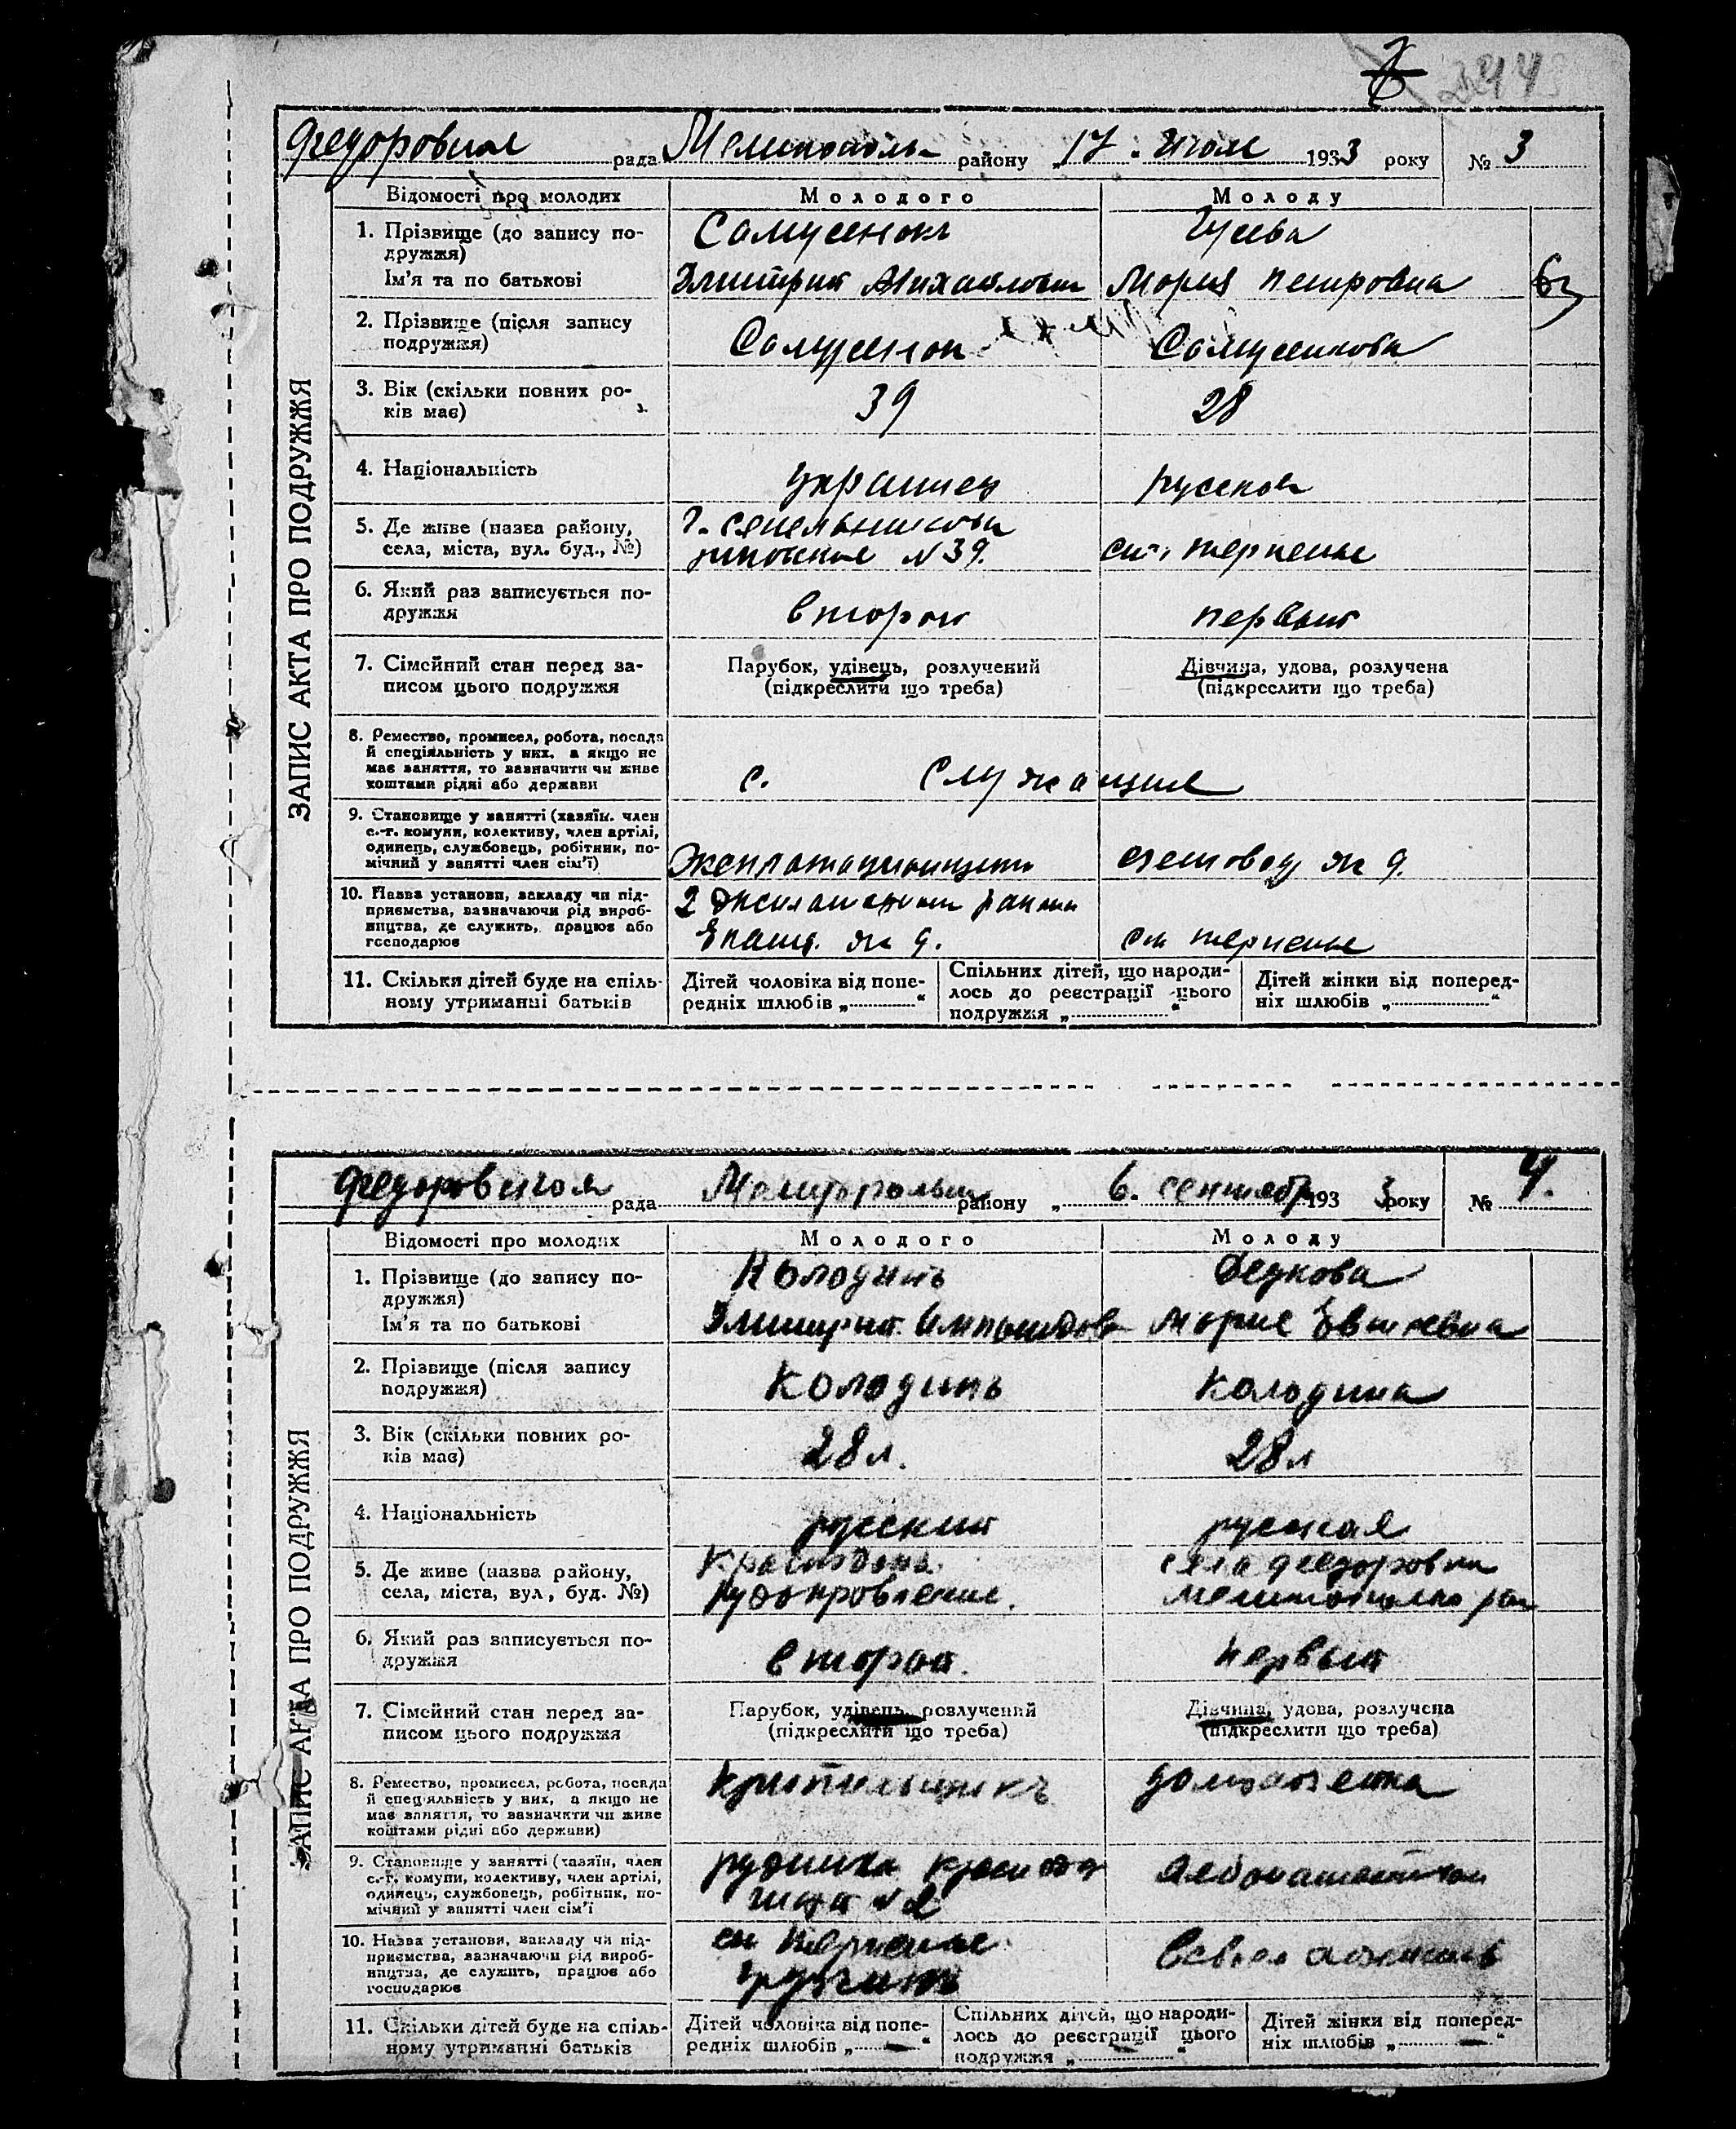 2443
Федоровская рада Мелитополь района „ 17 . Июля 1933 року № 3
ЗАПИС АКТА ПРО ПОДРУЖЖЯ
Відомості про молодих Молодого Молоду
1. Прізвище (до запису по- Самусенокъ Гусева
дружжя)
Ім'я та по батькові Дмитрий Михайлович Мория Петровна
2. Прізвище (після запису
подружжя) Самусенок Самусенкова
3. Вік (скільки повних ро-
ків має) 39 28
4. Національність украинец русская
5. Де живе (назва району, г. Сенельниково
села, міста, вул. буд., №) № 39. ст. терпенье
6. Який раз записується по-
дружжя второй первый
7. Сімейний стан перед за- Парубок, удівець, розлучений Дівчина, удова, розлучена
писом цього подружжя (підкреслити що треба) (підкреслити що треба)
8. Ремество, промисел, робота, посада
й спеціяльність у них, а якщо не
має заняття, то зазначити чи живе
коштами рідні або держави с. Служащие
9. Становище у занятті (хазяїн, член
с.-г. комуни, колективу, член артілі,
одинець, службовець, робітник, по-
мічний у занятті член сім'ї) счетовод ж д.
10. Назва установи, закладу чи під- 2
приємства, зазначаючи рід вироб-
ництва, де служить, працює або
господарює ж д. ст терпенье
11. Скільки дітей буде на спіль- Дітей чоловіка від попе- Спільних дітей, що народи- Дітей жінки від поперед-
ному утриманні батьків редніх шлюбів „ “ лось до реєстрації цього ніх шлюбів „ “
подружжя „ “
Федоровская рада Мелитополь району „ 6. сентябр 1933 року № 4.
ЗАПИС АКТА ПРО ПОДРУЖЖЯ
Відомості про молодих Молодого Молоду
1. Прізвище (до запису по- Колодинъ Федкова
дружжя)
Ім'я та по батькові Дмитрий Мория
2. Прізвище (після запису
подружжя) Колодинъ Колодина
3. Вік (скільки повних ро-
ків має) 28 л. 28 л
4. Національність русский русская
5. Де живе (назва району, Краснодонъ села федоровки
села, міста, вул., буд. №) рудоуправление.
6. Який раз записується по-
дружжя второй. первый
7. Сімейний стан перед за- Парубок, удівець, розлучений Дівчина, удова, розлучена
писом цього подружжя (підкреслити що треба) (підкреслити що треба)
8. Ремество, промисел, робота, посада крипильщикъ домохозейка
й спеціяльність у них, а якщо не
має заняття, то зазначити чи живе
коштами рідні або держави)
9. Становище у занятті (хазяїн, член рудника
с.-г. комуни, колективу, член артілі,
одинець, службовець, робітник, по-
мічний у занятті член сім'ї № 2
10. Назва установи, закладу чи під- ст терпенье
приємства, зазначаючи рід вироб-
ництва, де служить, працює або
господарює
11. Скільки дітей буде на спіль- Дітей чоловіка від попе- Спільних дітей, що народи- Дітей жінки від поперед-
ному утриманні батьків редніх шлюбів „ — “ лось до реєстрації цього ніх шлюбів „ — “
подружжя „ — “